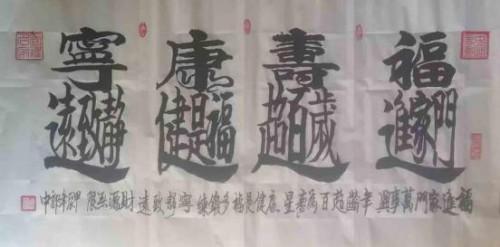 福進家門
壽超百歲
康健是福
寧靜致遠
福進家門萬事興年齡超百為壽星康健是福多鍛練寧靜致遠財源